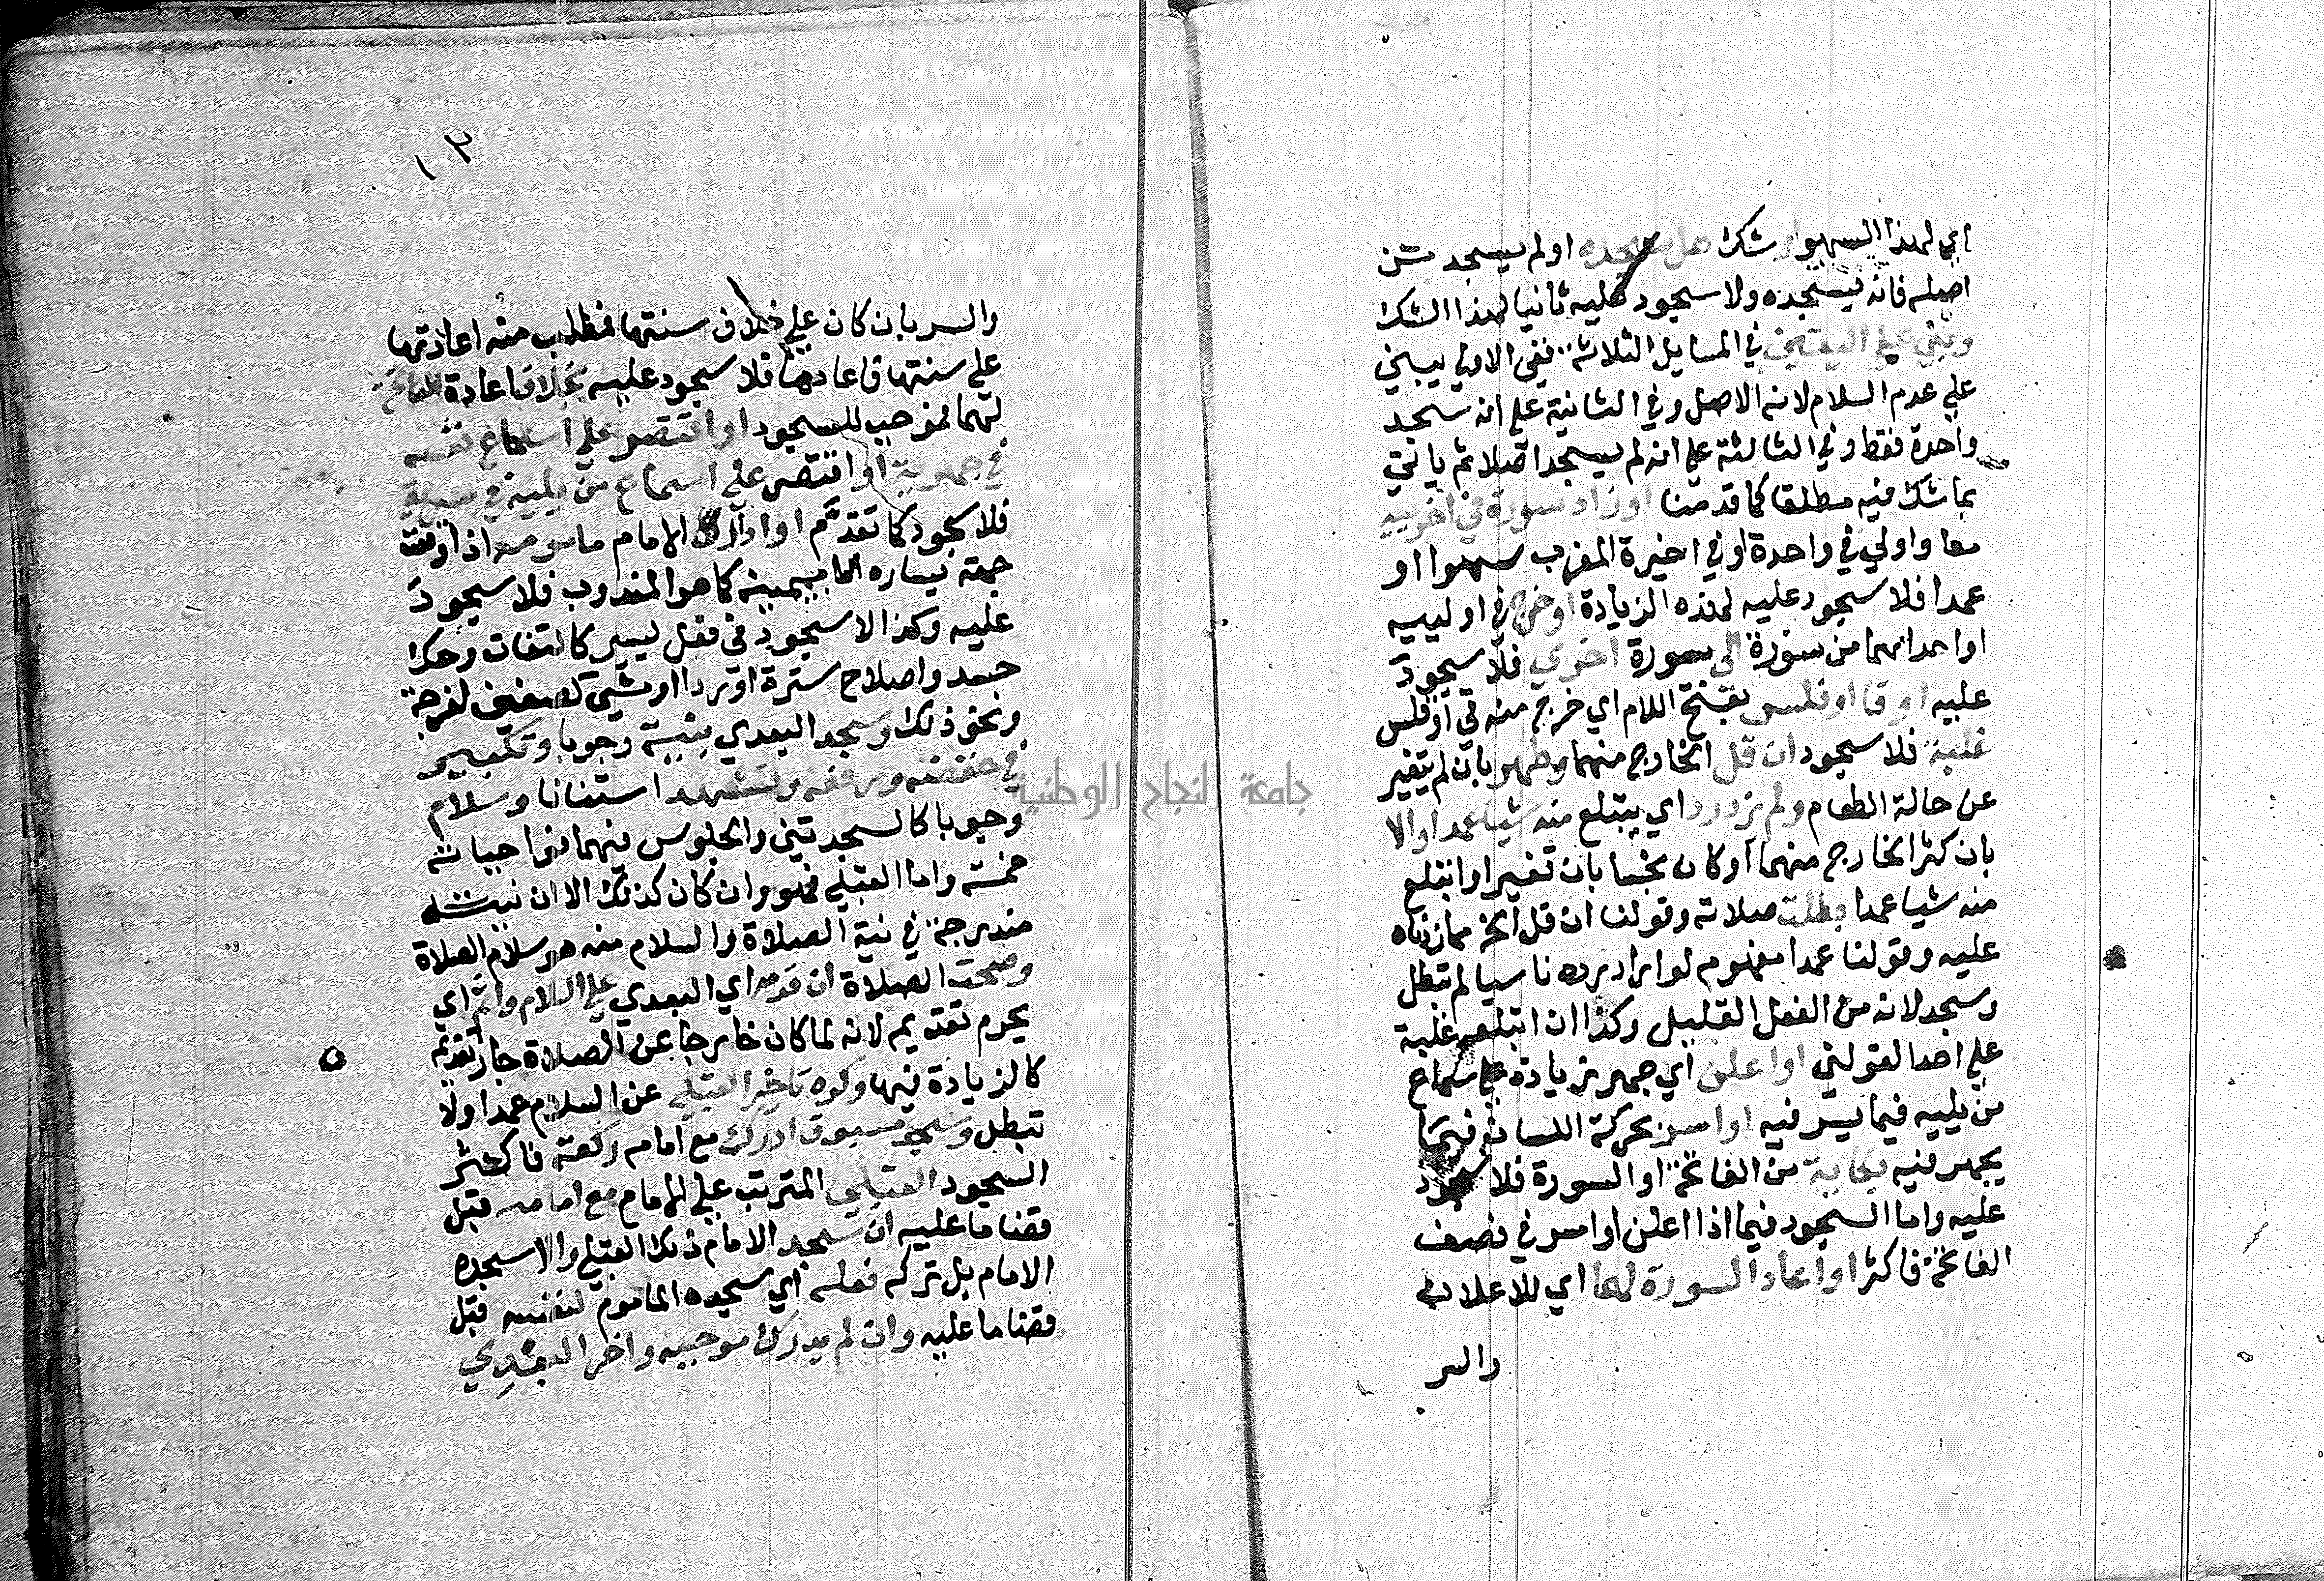 اي لهذا السهو او شك هل سجده او لم يسجد من
اصله فانه يسجده ولا سجود عليه ثانيا لهذا الشك
وبني علي اليقين في المسايل الثلاثة ففي الاولي يبني
علي عدم السلام لانه الاصل وفي الثانية علي انه سجد
واحدة فقط وفي الثالثة علي انه لم يسجد اصلا ثم ياتي
بما شك فيه مطلقا كما قدمنا او زاد سورة في اخرييه
معا واولي في واحدة او في اخيرة المغرب سهوا او
عمدا فلا سجود عليه لهذه الزيادة او خرج في اولييه
او احداهما من سورة الي سورة اخري فلا سجود
عليه او قا او قلس بفتح اللام اي خرج منه قي او قلس
غلبة فلا سجود ان قل الخارج منهما وطهر بان لم يتغير
عن حالة الطعام ولم يزدرد اي يبتلع منه شيا عمدا والا
بان كثر الخارج منهما او كان نجسا بان تغير او ابتلع
منه شيا عمدا بطلت صلاته وقولنا ان قل الخ مما زدناه
عليه وقولنا عمدا مفهوم لو ازدرده ناسيا لم تبطل
وسجد لانه من الفعل القليل وكذا ان ابتلعه غلبة
علي احد القولين او اعلن اي جهر زيادة علي سماع
من يليه فيما يسر فيه او اسر بحركة اللسان فيما
يجهر فيه بكاية من الفاتحة او السورة فلا سجود
عليه واما السجود فيما اذا اعلن او اسر في نصف
الفاتحة فاكثر او اعاد السورة لهما اي للاعلان
والسر
١٣
والسر بان كان علي خلاف سنتها فطلب منه اعادتها
علي سنتها فاعادها فلا سجود عليه بخلاف اعادة الفاتحة
لهما فموجب للسجود او اقتصر علي اسماع نفسه
في جهرية او اقتصر علي اسماع من يليه في سرية
فلا سجود كما تقدم او ادار الامام مامومه اذا وقف
جهة يساره لما بيمينه كما هو المندوب فلا سجود
عليه وكذا لا سجود في فعل يسير كالتفات وحك
جسد واصلاح سترة او ردا او مشي كصفين لفرجة
ونحو ذلك وسجد البعدي بنية وجوبا وتكبير
في خفضه ورفعه وتشهد استنانا وسلام
وجوبا كالسجدتين والجلوس فيهما فواجباته
خمسة واما القبلي فهو وان كان كذلك الا ان نيته
مندرجة في نية الصلاة والسلام منه هو سلام الصلاة
وصحت الصلاة ان قدمه اي البعدي علي السلام واثم اي
يحرم تقديمه لانه لما كان خارجا عن الصلاة جاز تقديمه
كالزيادة فيها وكره تاخير القبلي عن السلام عمدا ولا
تبطل وسجد مسبوق ادرك مع امامه ركعة فاكثر
السجود القبلي المترتب علي الامام مع امامه قبل
قضا ما عليه ان سجد الامام ذلك القبلي والا يسجده
الامام بل تركه فعله اي سجده الماموم لنفسه قبل
قضا ما عليه وان لم يدرك موجبه واخر البعدي
جامعة النجاح الوطنية